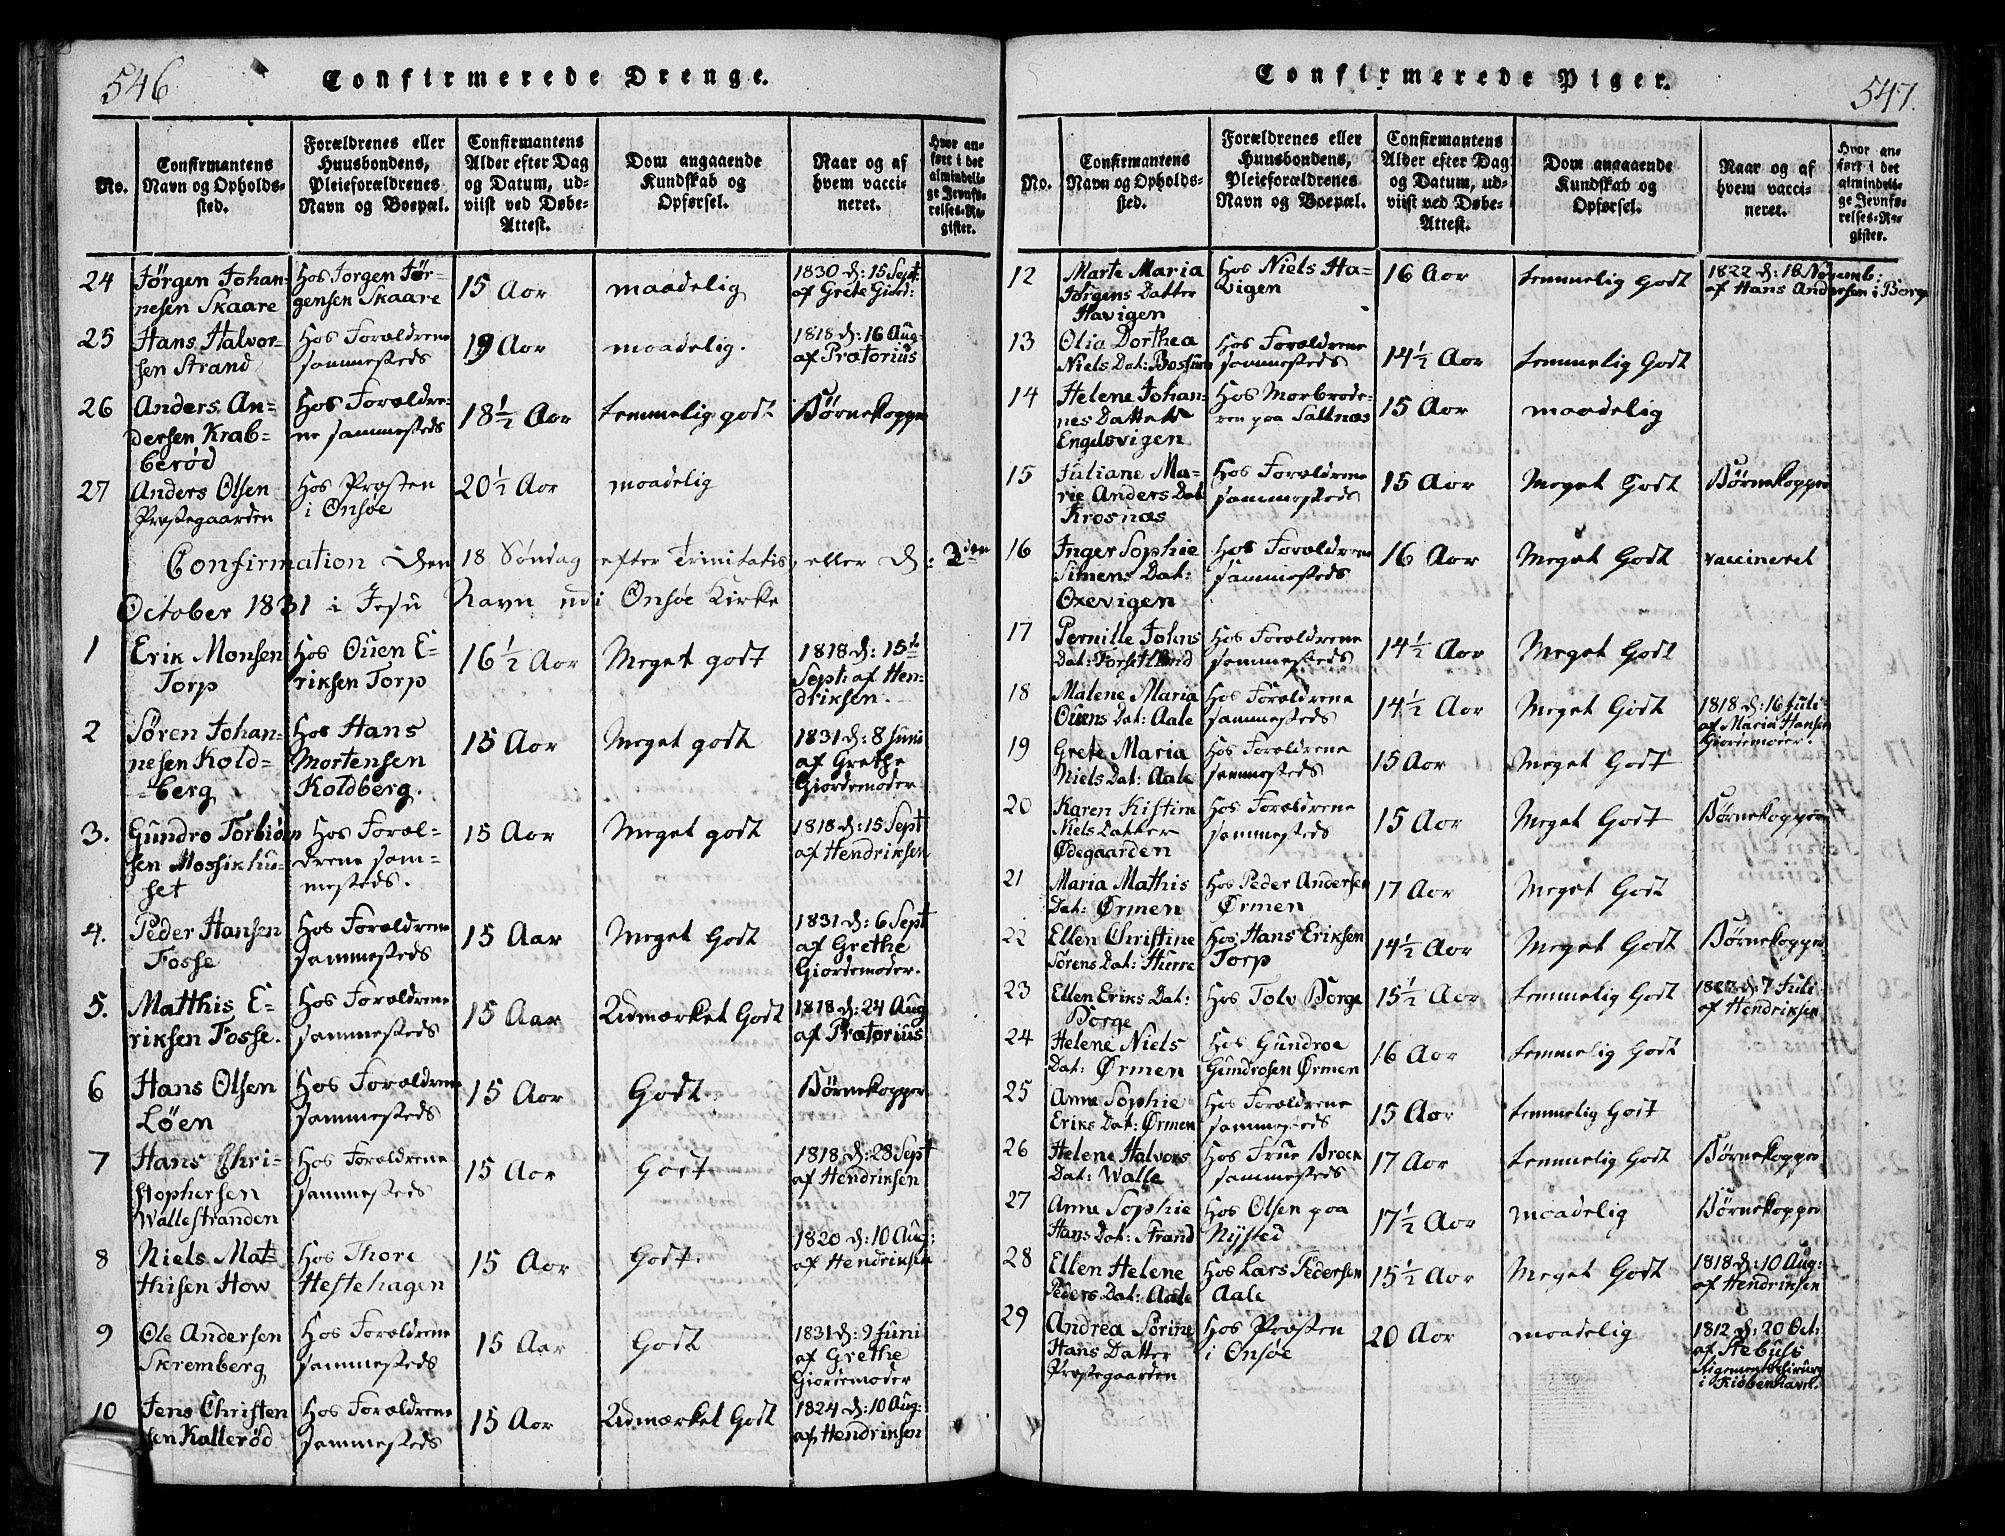 546
Confirmerede Drenge.
No.
Confirmantens
Navn og Opholds-
sted.
Forældrenes eller
Huusbondens,
Pleieforældrenes
Navn og Boepæl.
Confirmantens
Alder efter Dag
og Datum, ud-
viist ved Døbe-
Attest.
Dom angaaende
Kundskab og
Opførsel.
Naar og af
hvem vacci-
neret.
Hvor an-
ført i det
almindeli-
ge Jevnfø-
relses-Re-
gister.
24
Jørgen Johan-
nesen Skaare
Hos Jørgen Jør-
gensen Skaare
15 Aar
maadelig
1830 d: 15 Sept:
af Grete Giord:
25
Hans Halvor-
sen Strand
Hos Forældrene
sammesteds
19 Aar
maadelig.
1818 d: 16 Aug:
af Prætorius
26
Anders An-
dersen Krab-
berød
Hos Forældre-
ne sammesteds
18½ Aar
temmelig godt
Børnekopper
27
Anders Olsen
Præstegaarden
Hos Præsten
i Onsøe
20½ Aar
maadelig
Confirmation den 18 Søndag efter Trinitatis, eller d: 2den
October 1831 i Jesu Navn udi Onsøe Kirke
1
Erik Monsen
Torp
Hos Ouen E-
riksen Torp
16½ Aar
Meget godt
1818 d: 15t
Sept: af Hen-
driksen.
2
Søren Johan-
nesen Kold-
berg
Hos Hans
Mortensen
Koldberg.
15 Aar
Meget godt
1831 d: 8 Juni
af Grethe
Giordemoder
3.
Gundro Torbiørn
sen Mossikhu-
set
Hos Foræl-
drene sam-
mesteds.
15 Aar
Meget godt
1818 d: 15 Sept
af Hendriksen
4.
Peder Hansen
Fosse
Hos Forældrene
sammesteds
15 Aar
Meget Godt
1831 d: 6 Sept
af Grethe
Giordemoder.
5.
Matthis E-
riksen Fosse.
Hos Forældrene
sammesteds
15 Aar
Udmærket Godt
1818 d: 24 Aug
af Prætorius
6
Hans Olsen
Løen
Hos Forældrene
sammesteds
15 Aar
Godt
Børnekopper
7
Hans Chri-
stophersen
Wallestranden
Hos Forældrene
sammesteds
15 Aar
Godt
1818 d: 28 Sept
af Hendriksen
8
Niels Mat-
thisen How
Hos Thore
Hestehagen
15 Aar
Godt.
1820 d: 10 Aug:
af Hendriksen
9
Ole Andersen
Skremberg
Hos Forældrene
sammesteds
15 Aar
Godt
1831 d: 9 Juni
af Grethe
Giordemoder
10
Jens Christen
sen Kallerød
Hos Forældrene
sammesteds
15 Aar
Udmærket Godt
1824 d: 10 Aug:
af Hendriksen
Confirmerede Piger.
547.
No.
Confirmantens
Navn og Opholds-
sted.
Forældrenes eller
Huusbondens,
Pleieforældrenes
Navn og Boepæl.
Confirmantens
Alder efter Dag
og Datum, ud-
viist ved Døbe-
Attest.
Dom angaaende
Kundskab og
Opførsel.
Naar og af
hvem vacci-
neret.
Hvor an-
ført i det
almindeli-
ge Jevnfø-
relses-Re-
gister.
12
Marte Maria
Jørgens Datter
Havigen
Hos Niels Ha-
vigen
16 Aar
temmelig Godt
1822 d: 18 Novemb:
af Hans Andersen i Borge
13
Olia Dorthea
Niels Dat:
Hos Forældrene
sammesteds
14½ Aar
temmelig Godt
14
Helene Johan-
nes Datter
Engelsvigen
Hos Morbrode-
ren paa Saltnæs
15 Aar
maadelig
15
Juliane Ma-
rie Anders Dat
Krosnæs
Hos Forældrene
sammesteds
15 Aar
Meget Godt
Børnekopper
16
Inger Sophie
Simens Dat:
Oxevigen
Hos Forældrene
sammesteds
16 Aar
Meget Godt
vaccineret
17
Pernille Johns
Dat:
Hos Forældrene
sammesteds
14½ Aar
Meget Godt
18
Malene Maria
Ouens Dat: Aale
Hos Forældrene
sammesteds
14½ Aar
Meget Godt
1818 d: 16 Juli
af Maria Hansen
Giordemoder.
19
Grete Maria
Niels Dat: Aale
Hos Forældrene
sammesteds
15 Aar
Meget Godt
20
Karen Kistine
Niels Datter
Ødegaarden
Hos Forældrene
sammesteds
15 Aar
Meget Godt
Børnekopper
21
Maria Mathis
Dat: Ørmen
Hos Peder Andersen
Ørmen
17 Aar
Meget Godt
22
Ellen Christine
Sørens Dat: Hurre
Hos Hans Eriksen
Torp
14½ Aar
Meget Godt
Børnekopper
23
Ellen Eriks Dat:
Borge
Hos Tolv Borge
15½ Aar
temmelig Godt
d: 7 Juli
af Hendriksen
24
Helene Niels
Dat: Ørmen
Hos Gundroe
Gundrosen Ørmen
16 Aar
temmelig Godt
25
Anne Sophie
Eriks Dat: Ørmen
Hos Forældrene
sammesteds
15 Aar
temmelig Godt
26
Helene Halvors
Dat: Walle
Hos Frue Brock
sammesteds
17 Aar
temmelig Godt
Børnekopper
27
Anne Sophie
Hans Dat: Strand
Hos Olsen paa
Nysted
17½ Aar
maadelig
Børnekopper
28
Ellen Helene
Peders Dat: Aale
Hos Lars Pedersen
Aale
15½ Aar
Meget Godt
1818 d: 10 Aug:
af Hendriksen
29
Andrea Sørine
Hans Datter
Præstegaarden
Hos Præsten
i Onsøe
20 Aar
maadelig
1812 d: 20 Oct:
af
i Kiøbenhavn.